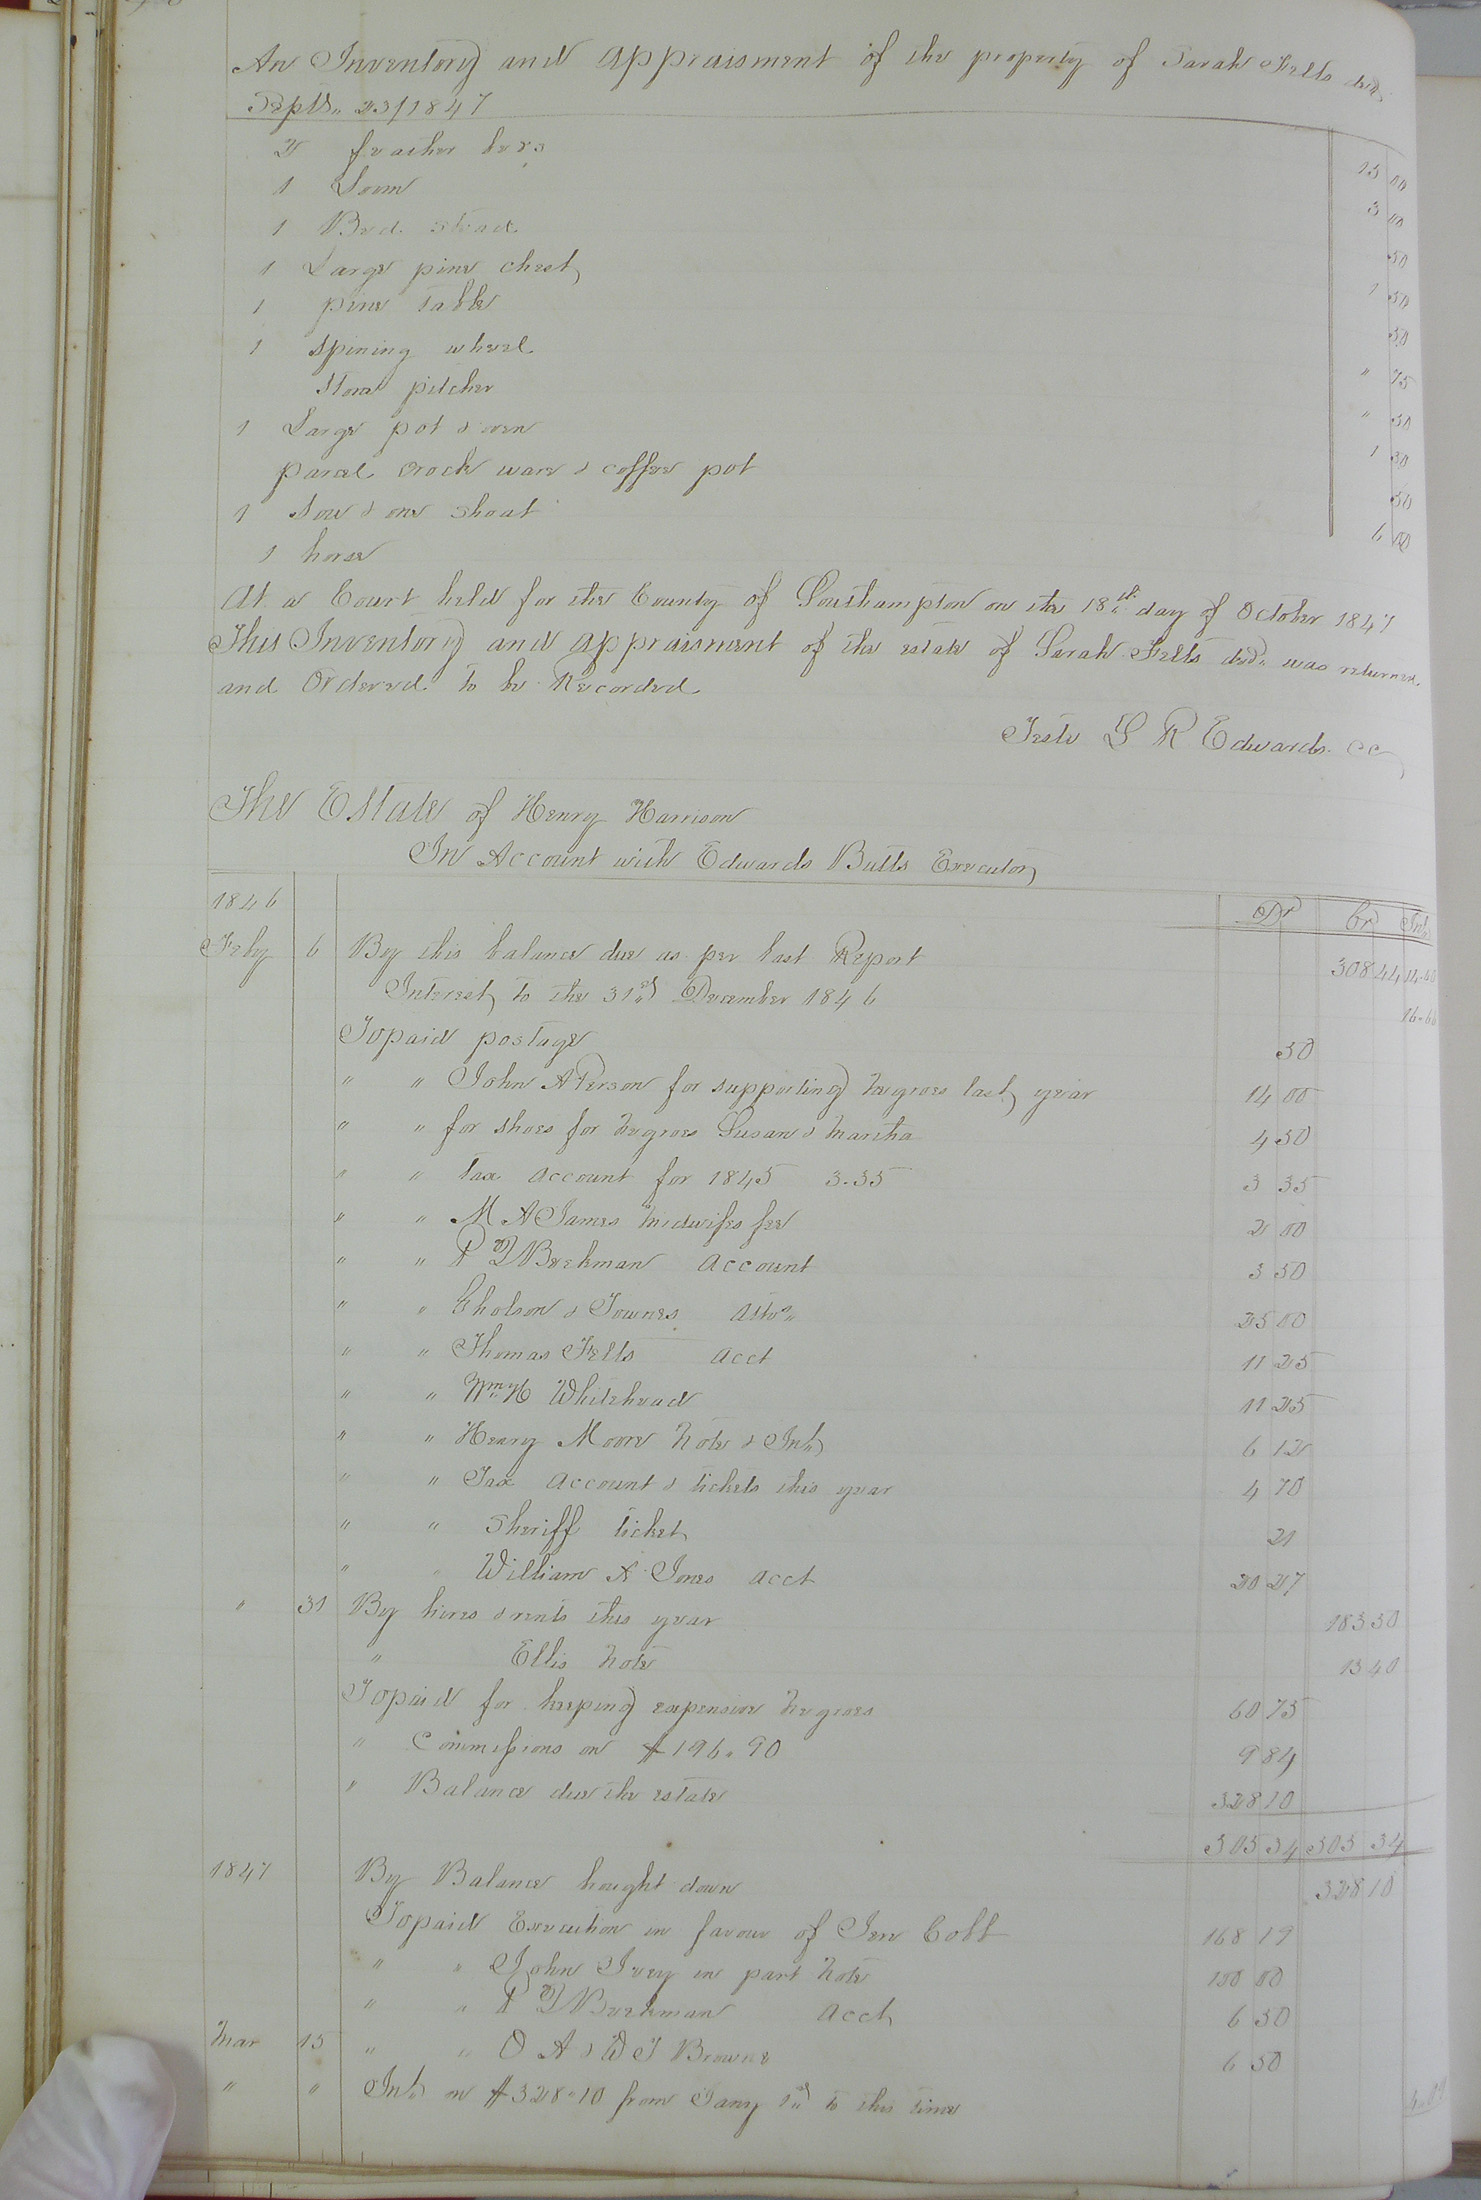 An Inventory and appraisment of the property of Sarah Felts decd.
Septr. 23/1847
2 feather beds 15 00
1 Loom 3 00
1 Bed stead 50
1 Large pine chest 1 50
1 pine table 50
1 spining wheel " 75
Stone pitcher " 50
1 Large pot & oven 1 50
parcel crock ware & coffee pot 50
1 Sow & one shoat 6 00
1 horse
At a Court held for the County of Southampton on the 18th day of October 1847
This Inventory and appraisment of the estate of Sarah Felts decd. was returned
and Ordered to be Recorded
Teste L R Edwards CC
The Estate of Henry Harrison
In Account with Edwards Butts Executor
1846 Dr Cr Int
Feby 6 By this balance due as per last Report 308 44
Interest to the 31st December 1846 16.66
To paid postage 50
" " John A Person for supporting negroes last year 14 00
" " for shoes for negroes Susan & Martha 4 50
" " Tax account for 1845 3.35 3 35
" " M A James midwifes fee 2 00
" " account 3 50
" " Gholson & Townes Atto. 25 00
" " Thomas Felts acct 11 25
" " Wm H Whitehead 11 25
" " Henry Moore note & Int. 6 12
" " Tax account & tickets this year 4 70
" " Sheriff ticket 21
" " William A Jones acct 20 27
" 31 By hires & rents this year 183 50
" Ellis note 13 40
To paid for keeping expensive negroes 60 75
" Commissions on $196.90 9 84
" Balance due the estate 328 10
505 34 505 34
1847 By Balance bought down 328 10
To paid Execution in favour of Cobb 168 19
" " John Ivey in part note 100 00
" " acct 6 50
Mar 15 " " O A & W T Browne 6 50
" " Int. on $328.10 from Jany 1st to this time